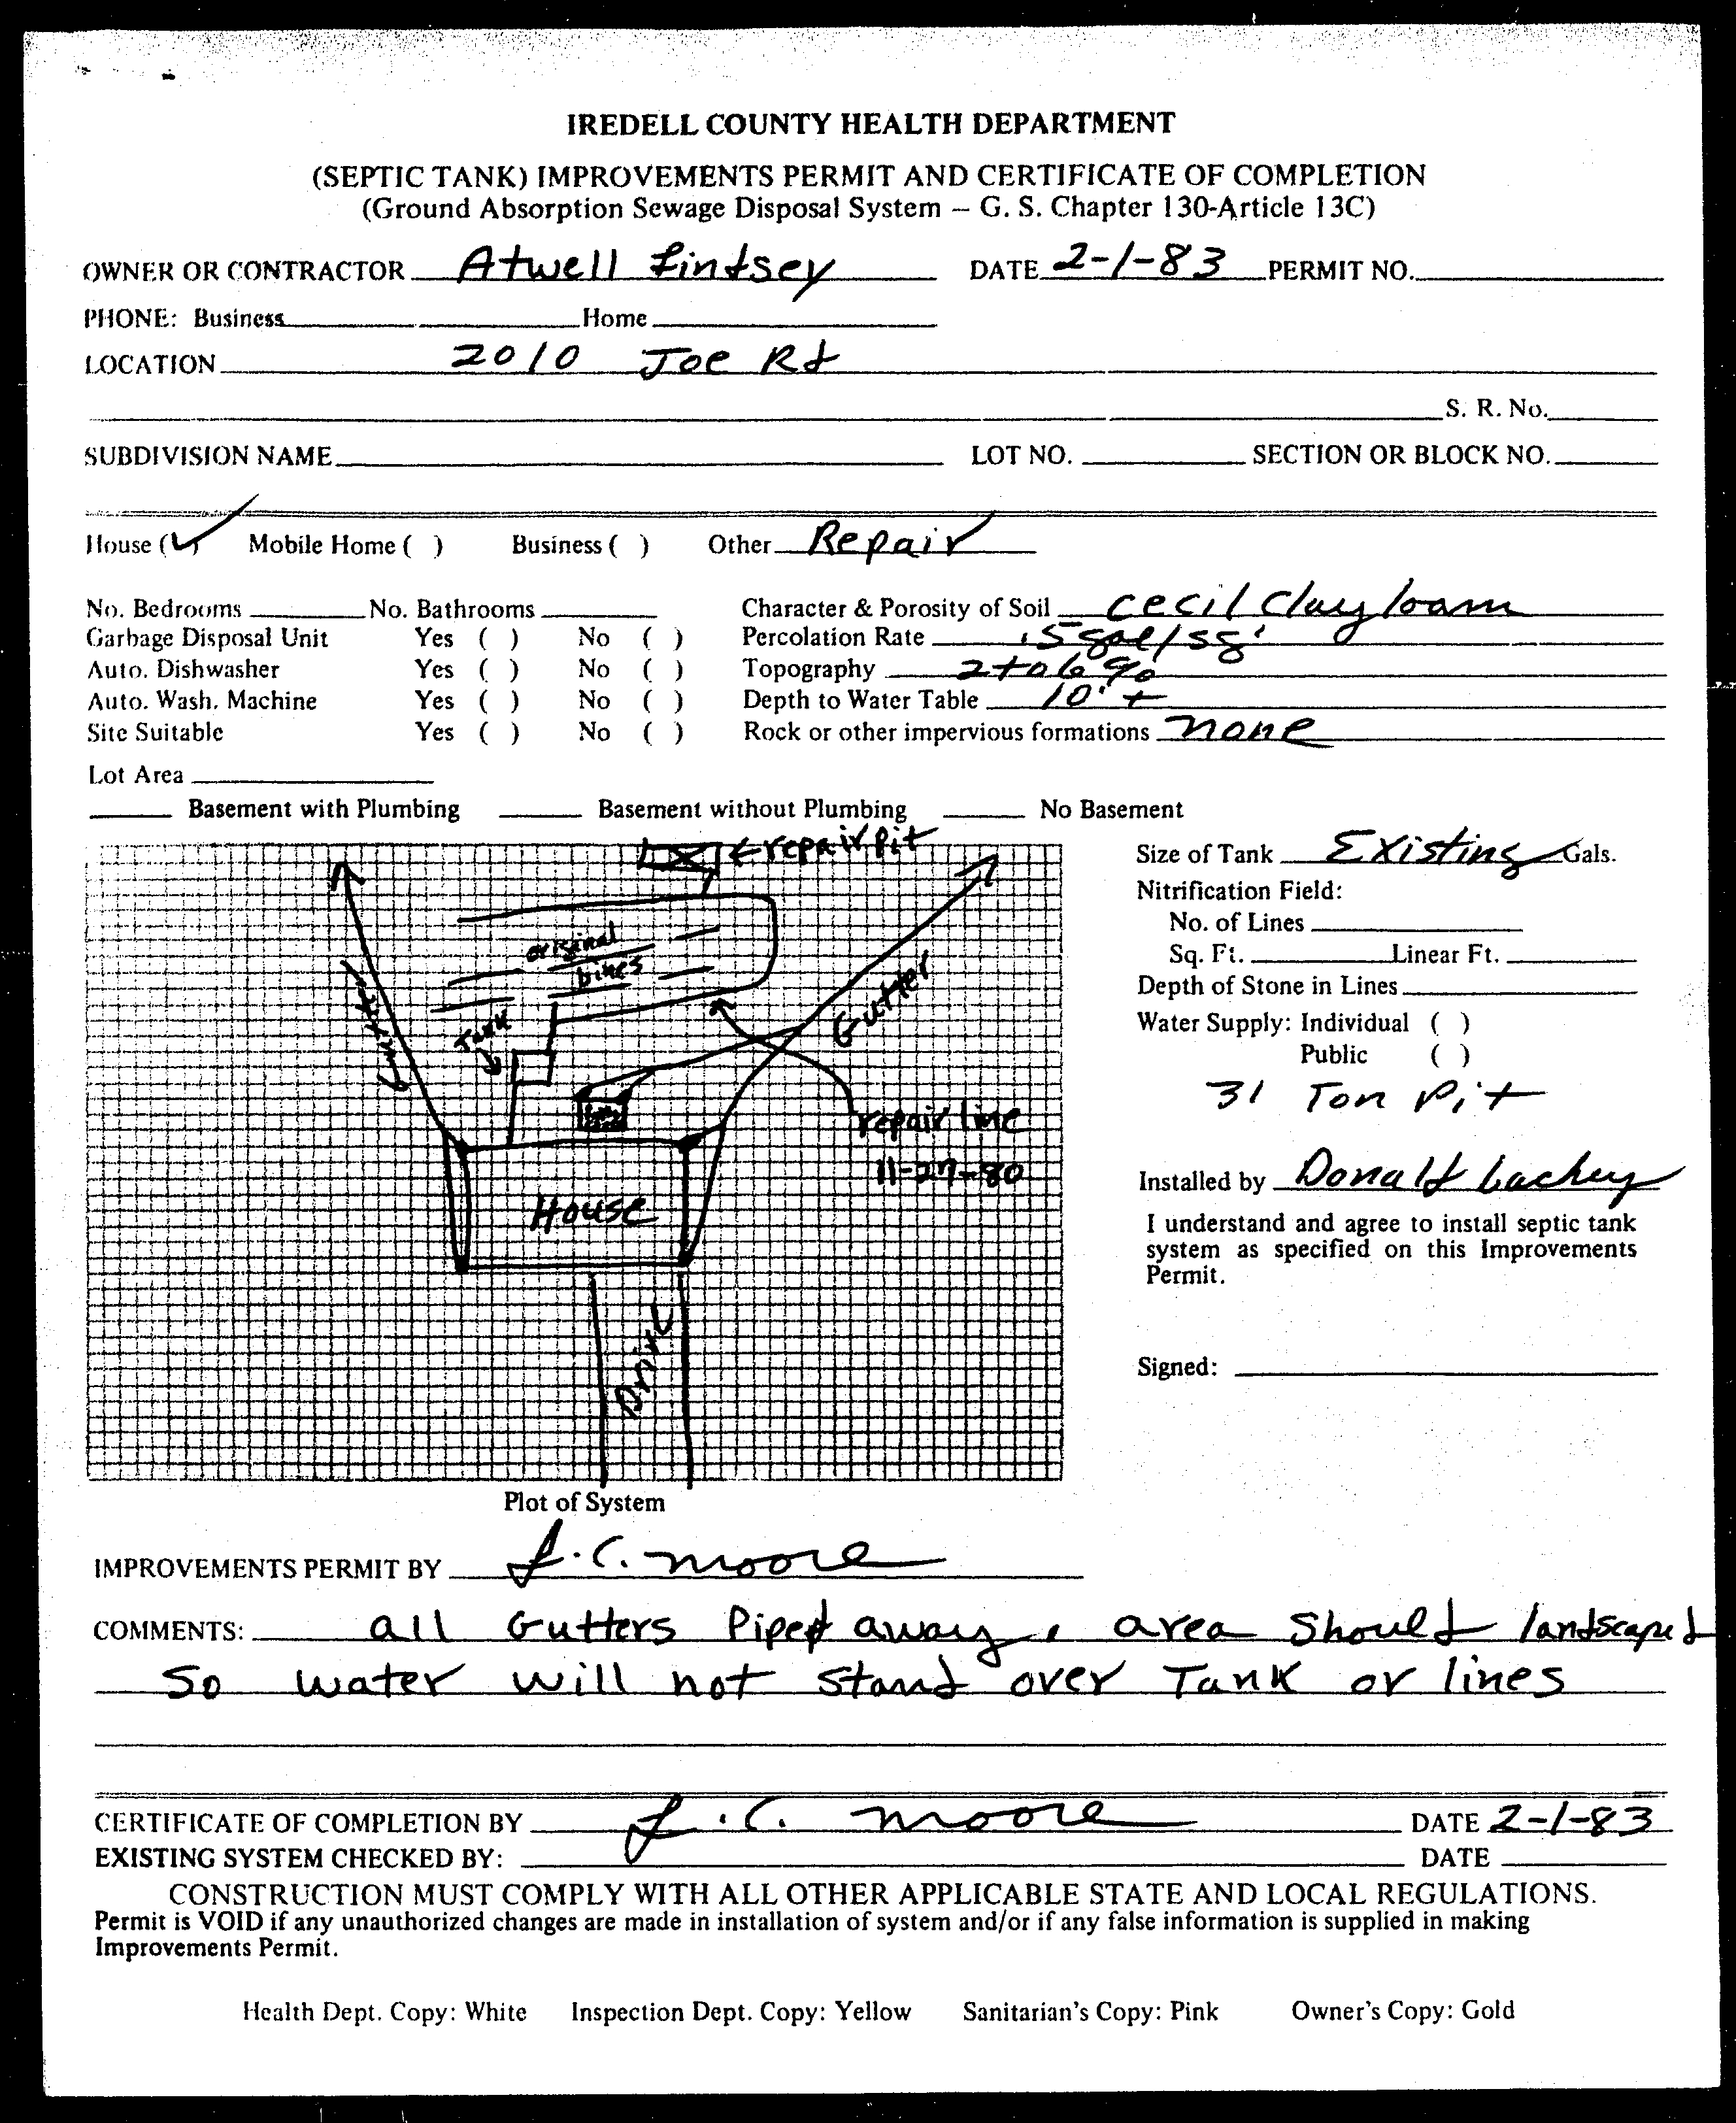 IREDELL COUNTY HEALTH DEPARTMENT
(SEPTIC TANK) IMPROVEMENTS PERMIT AND CERTIFICATE OF COMPLETION
(Ground Absorption Sewage Disposal System – G. S. Chapter 130-Article 13C)
OWNER OR CONTRACTOR Atwell Lindsey DATE 2-1-83 PERMIT NO.
PHONE: Business Home
LOCATION 2010 Joe Rd
S. R. No.
SUBDIVISION NAME LOT NO. SECTION OR BLOCK NO.
House (✓) Mobile Home ( ) Business ( ) Other Repair
No. Bedrooms No. Bathrooms Character & Porosity of Soil Cecil Clay loam
Garbage Disposal Unit Yes ( ) No ( ) Percolation Rate .5 gal/sq'
Auto. Dishwasher Yes ( ) No ( ) Topography 2 to 6 %
Auto. Wash. Machine Yes ( ) No ( ) Depth to Water Table 10' +
Site Suitable Yes ( ) No ( ) Rock or other impervious formations none
Lot Area
Basement with Plumbing Basement without Plumbing No Basement
← repair Pit
original
lines
Tank
Gutter
repair line
11-27-80
House
Drive
Size of Tank Existing Gals.
Nitrification Field:
No. of Lines
Sq. Ft. Linear Ft.
Depth of Stone in Lines
Water Supply: Individual ( )
Public ( )
31 Ton Pit
Installed by Donald Lackey
I understand and agree to install septic tank
system as specified on this Improvements
Permit.
Signed:
Plot of System
IMPROVEMENTS PERMIT BY L.C. Moore
COMMENTS: all Gutters Piped away, area Should landscaped
So water will not stand over Tank or lines
CERTIFICATE OF COMPLETION BY L.C. Moore DATE 2-1-83
EXISTING SYSTEM CHECKED BY: DATE
CONSTRUCTION MUST COMPLY WITH ALL OTHER APPLICABLE STATE AND LOCAL REGULATIONS.
Permit is VOID if any unauthorized changes are made in installation of system and/or if any false information is supplied in making
Improvements Permit.
Health Dept. Copy: White Inspection Dept. Copy: Yellow Sanitarian's Copy: Pink Owner's Copy: Gold